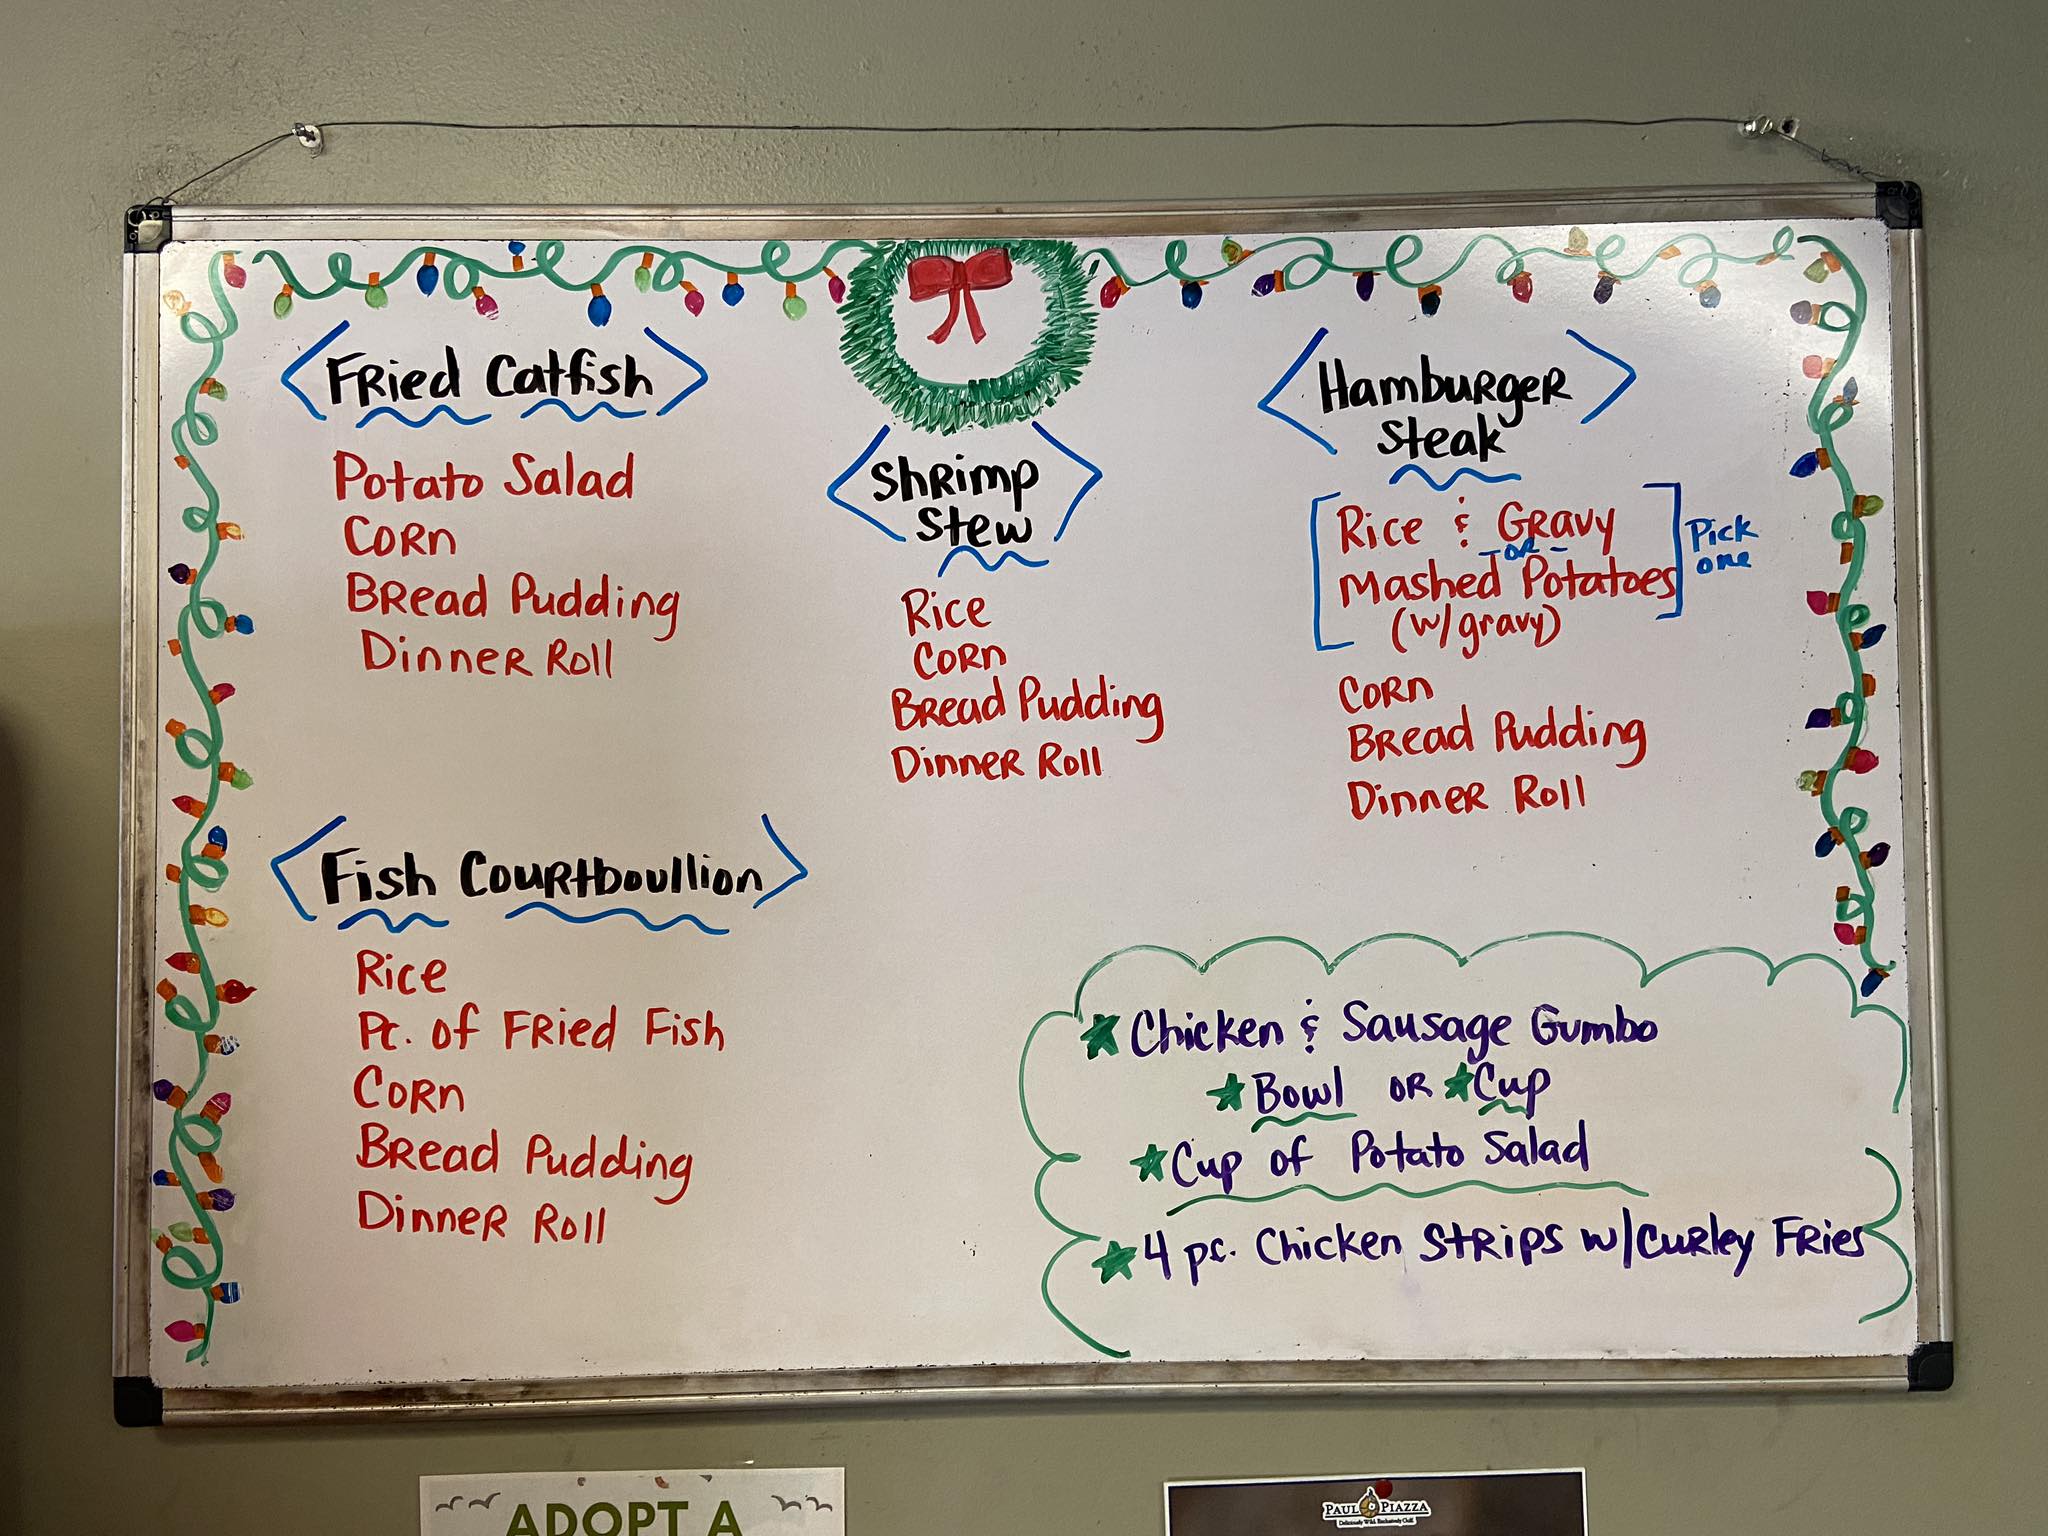 Fried Catfish
Potato Salad
Corn
Bread Pudding
Dinner Roll
Shrimp
Stew
Rice
Corn
Bread Pudding
Dinner Roll
Hamburger
Steak
Rice & Gravy
-or-
Mashed Potatoes
(w/gravy)
Pick
one
Corn
Bread Pudding
Dinner Roll
Fish Courtboullion
Rice
Pc. of Fried Fish
Corn
Bread Pudding
Dinner Roll
Chicken & Sausage Gumbo
Bowl or Cup
Cup of Potato Salad
4 pc. Chicken Strips w/Curley Fries
ADOPT A
PAUL PIAZZA